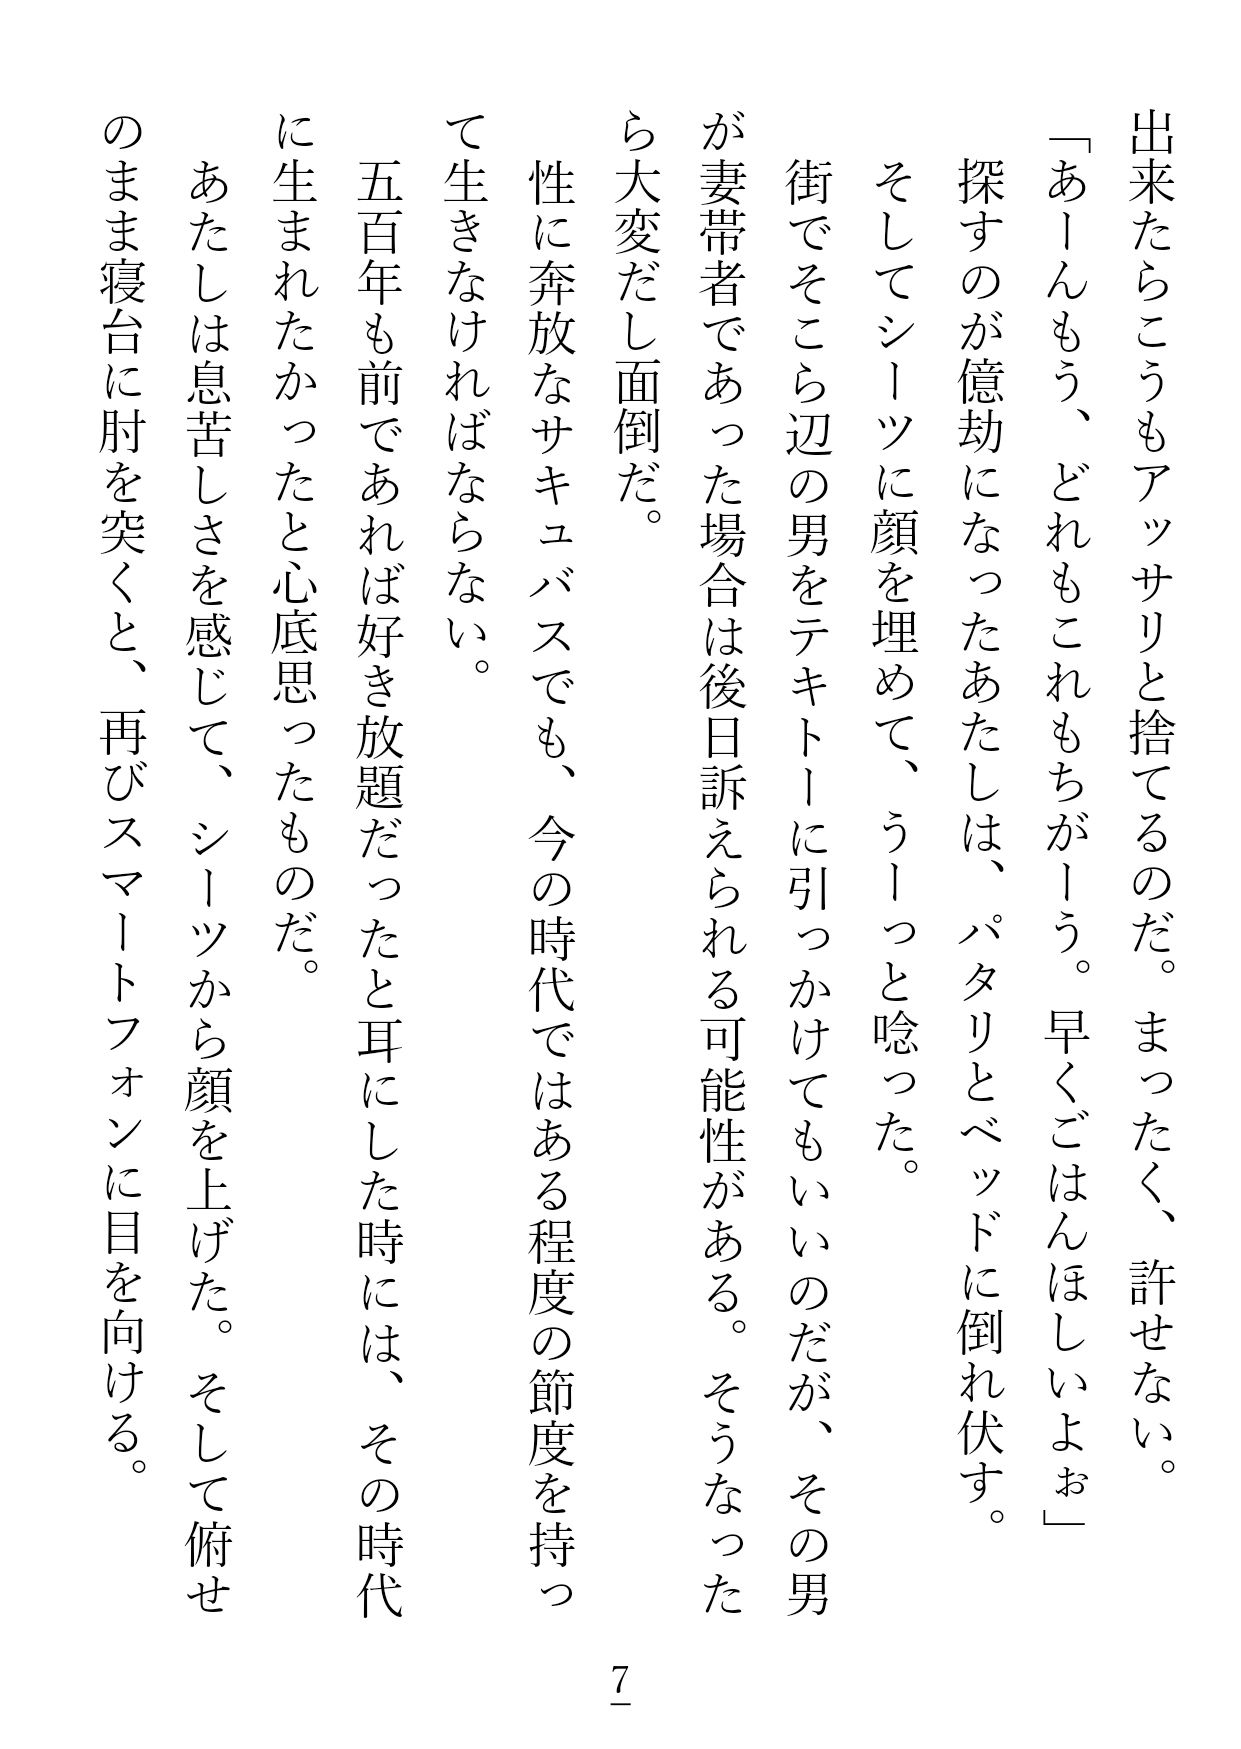 出来たらこうもアッサリと捨てるのだ。まったく、許せない。
「あーんもう、どれもこれもちがーう。早くごはんほしいよぉ」
　探すのが億劫になったあたしは、パタリとベッドに倒れ伏す。
　そしてシーツに顔を埋めて、うーっと唸った。
　街でそこら辺の男をテキトーに引っかけてもいいのだが、その男
が妻帯者であった場合は後日訴えられる可能性がある。そうなった
ら大変だし面倒だ。
　性に奔放なサキュバスでも、今の時代ではある程度の節度を持っ
て生きなければならない。
　五百年も前であれば好き放題だったと耳にした時には、その時代
に生まれたかったと心底思ったものだ。
　あたしは息苦しさを感じて、シーツから顔を上げた。そして俯せ
のまま寝台に肘を突くと、再びスマートフォンに目を向ける。
7